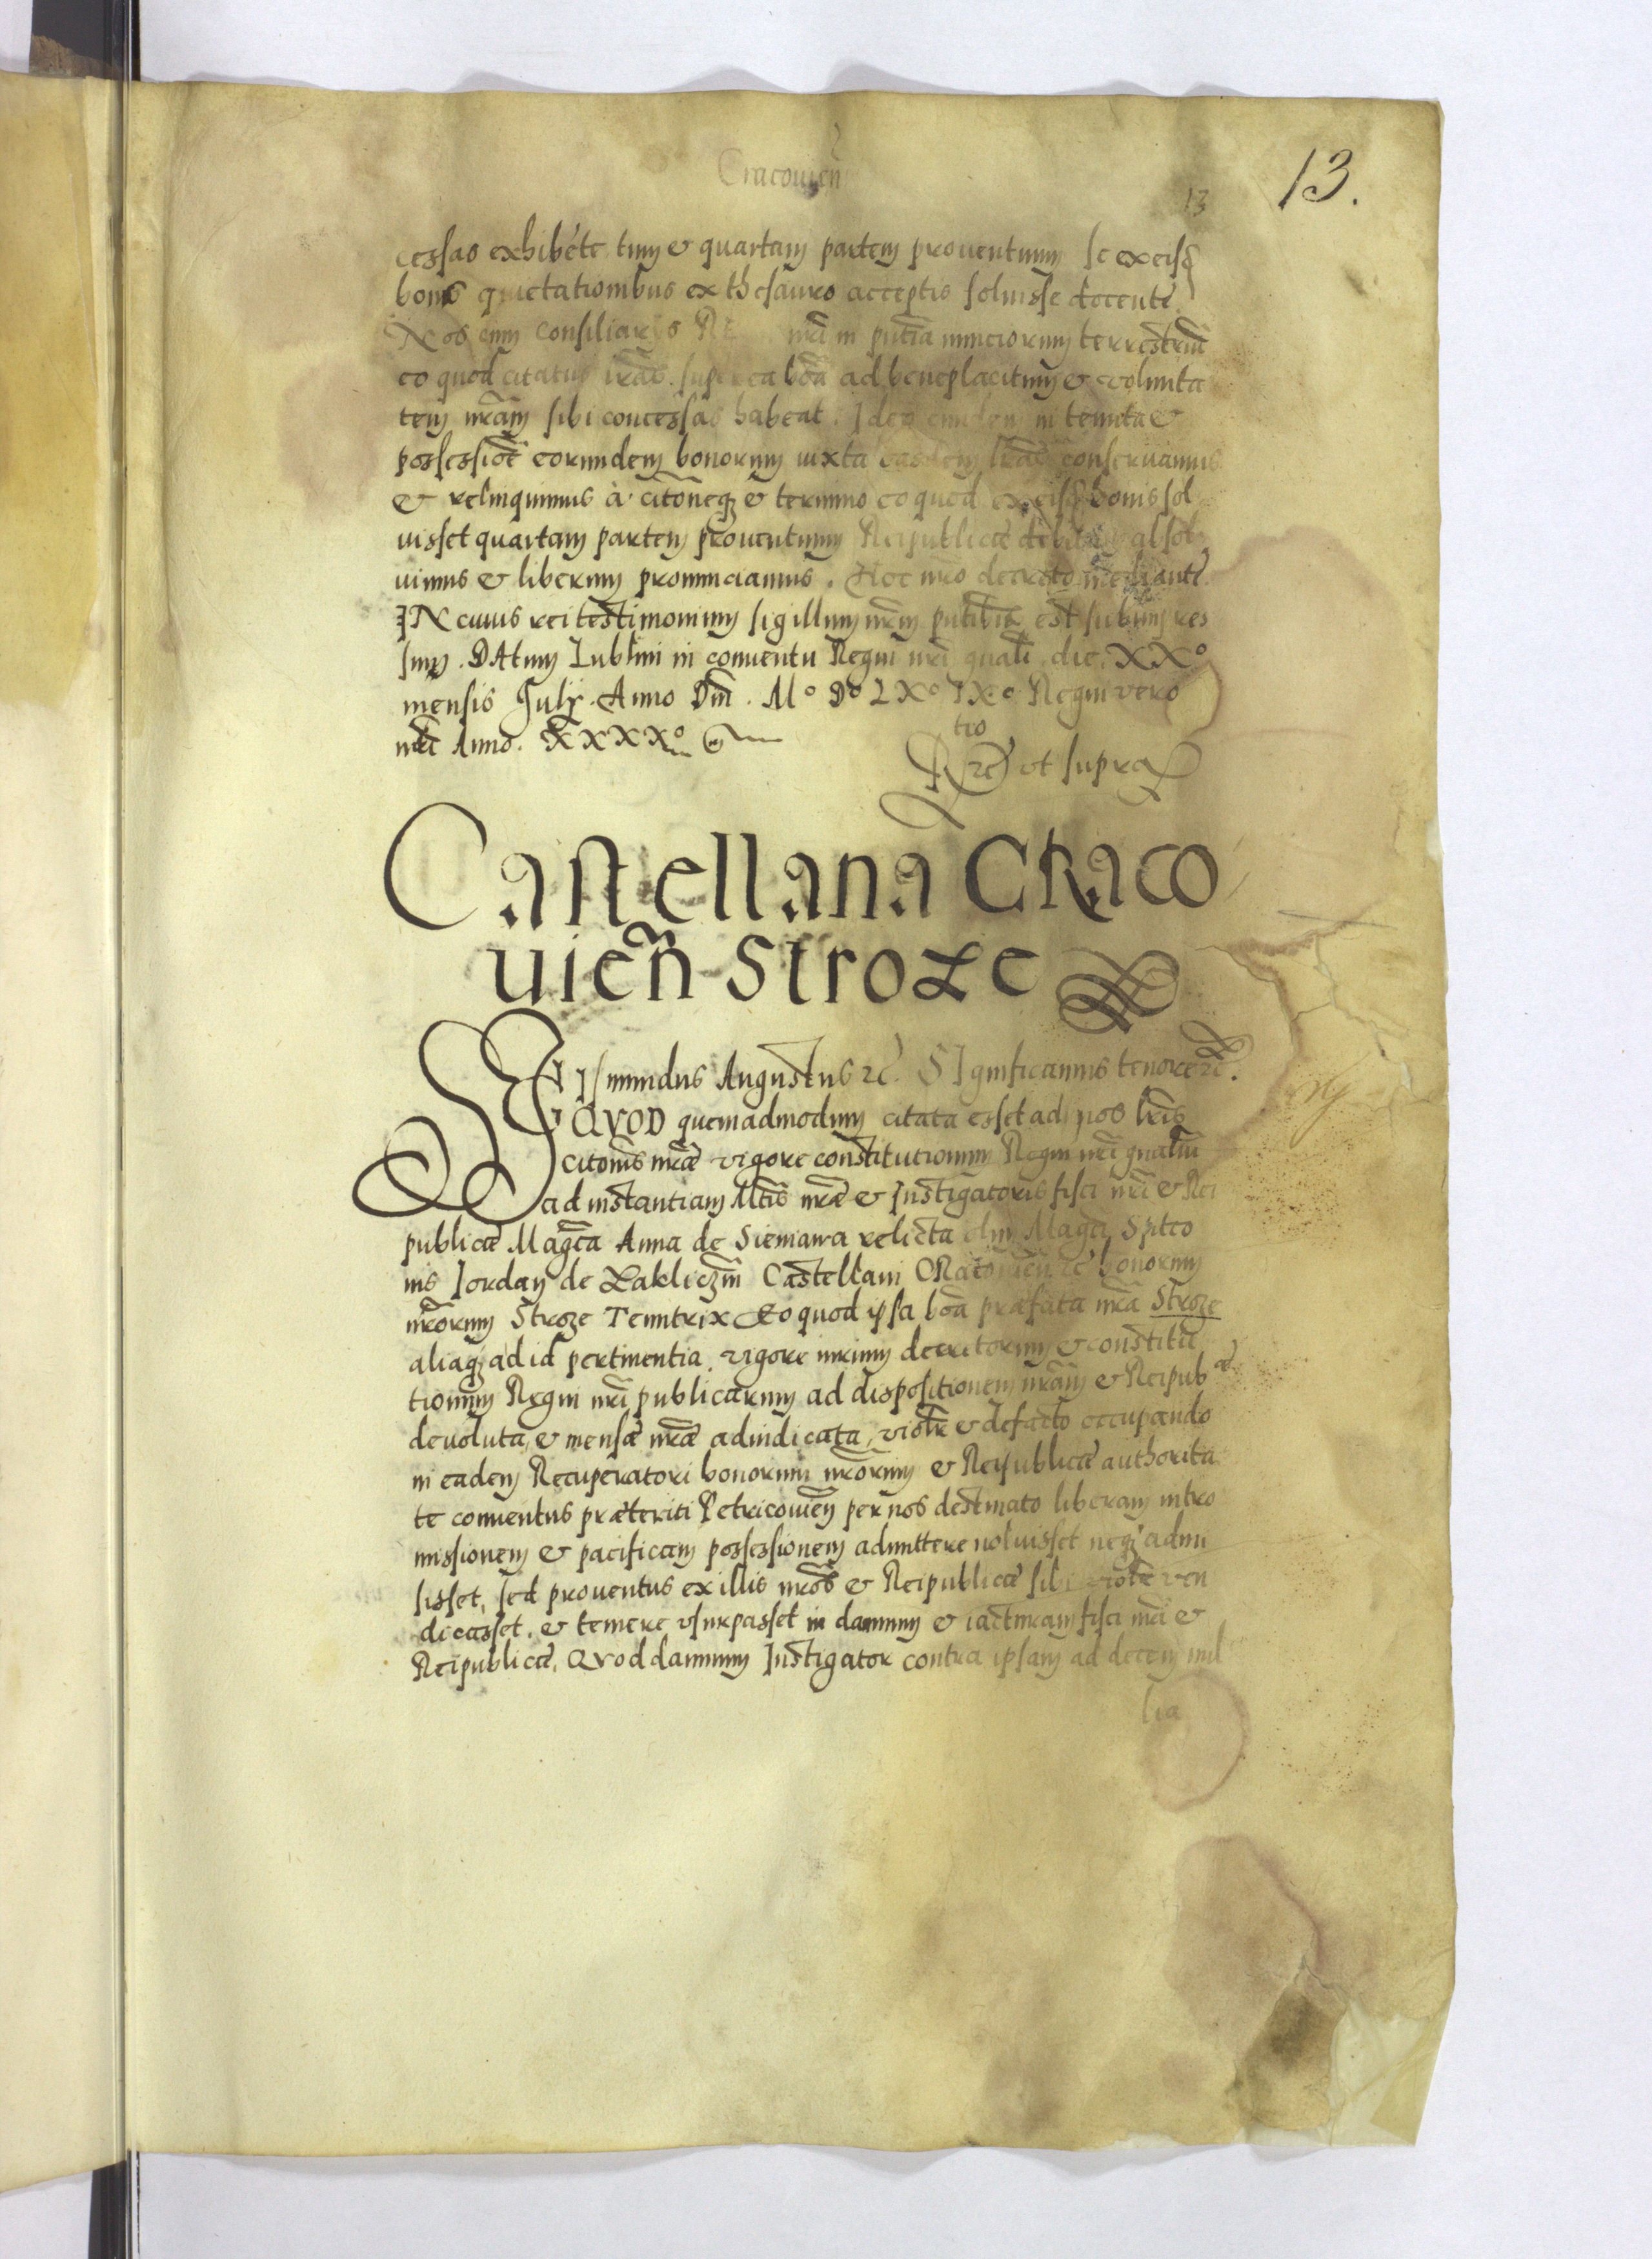 Cracouien̄
13
13.
cessas exhibẽte. tum & quartam partem prouentuum se ex eisd̃
bonis quietationibus ex thesauro acceptis soluisse docente.
Nos cum Consiliarijs nr̃i in pñtia nunciorum terrestriũ
eo quod citatus lr̃as super ea bõa ad beneplacitum & volunta
tem nr̃am sibi concessas habeat. Ideo eundem in tenuta &
possessiõe eorundem bonorum iuxta easdem lr̃as conseruamus
& relinquimus à citõneqꝫ & termino eo quod ex eisd̃ bonis sol
uisset quartam partem prouentuum Reipublicæ debitam absol
uimus & liberum pronunciamus. Hoc nr̃o decreto mediante.
IN cuius rei testimonium sigillum nr̃m pñtibus est subimpres
sum. DAtum Lublini in conuentu Regni nr̃i gnali. die. XXº
mensis Julij. Anno Dñi. Mº Dº LXº IXº Regni vero
nr̃i Anno. XXXXº
tio
Rꝛc̃ vt supra
Castellana CRaco
uien̄ Stroze
SIGIsmundus Augustus ꝛc̃. SIgnificamus tenore ꝛc̃.
QVOD quemadmodum citata esset ad nos lr̃is
citõnis nr̃æ vigore constitutionum Regni nr̃i gnaliũ
ad instantiam Mtis nr̃æ & Instigatoris fisci nr̃i & Rei
publicæ Magca Anna de Sieniawa relicta olim Magci Spitco
nis Iordan de Zakliczin Castellani CRacouien̄ ꝛc̃ bonorum
nr̃orum Stroze Tenutrix Eo quod ipsa bõa præfata nr̃a Stroze
aliaqꝫ ad id pertinentia. vigore nr̃orum decretorum & constitu
tionum Regni nr̃i publicarum ad dispositionem nr̃am & Reipub æ
deuoluta, & mensæ nr̃æ adiudicata, violr̃ & de facto occupando
in eadem Recuperatori bonorum nr̃orum & Reipublicæ authorita
te conuentus præteriti Petricouien̄ per nos destinato liberam intro
missionem & pacificam possessionem admittere noluisset neqꝫ admi
sisset, sed prouentus ex illis nr̃os & Reipublicæ sibi violr̃ ven
dicasset. & temere vsurpasset in damnum & iacturam fisci nr̃i &
Reipublicæ. Quod damnum Instigator contra ipsam ad decem mil
lia